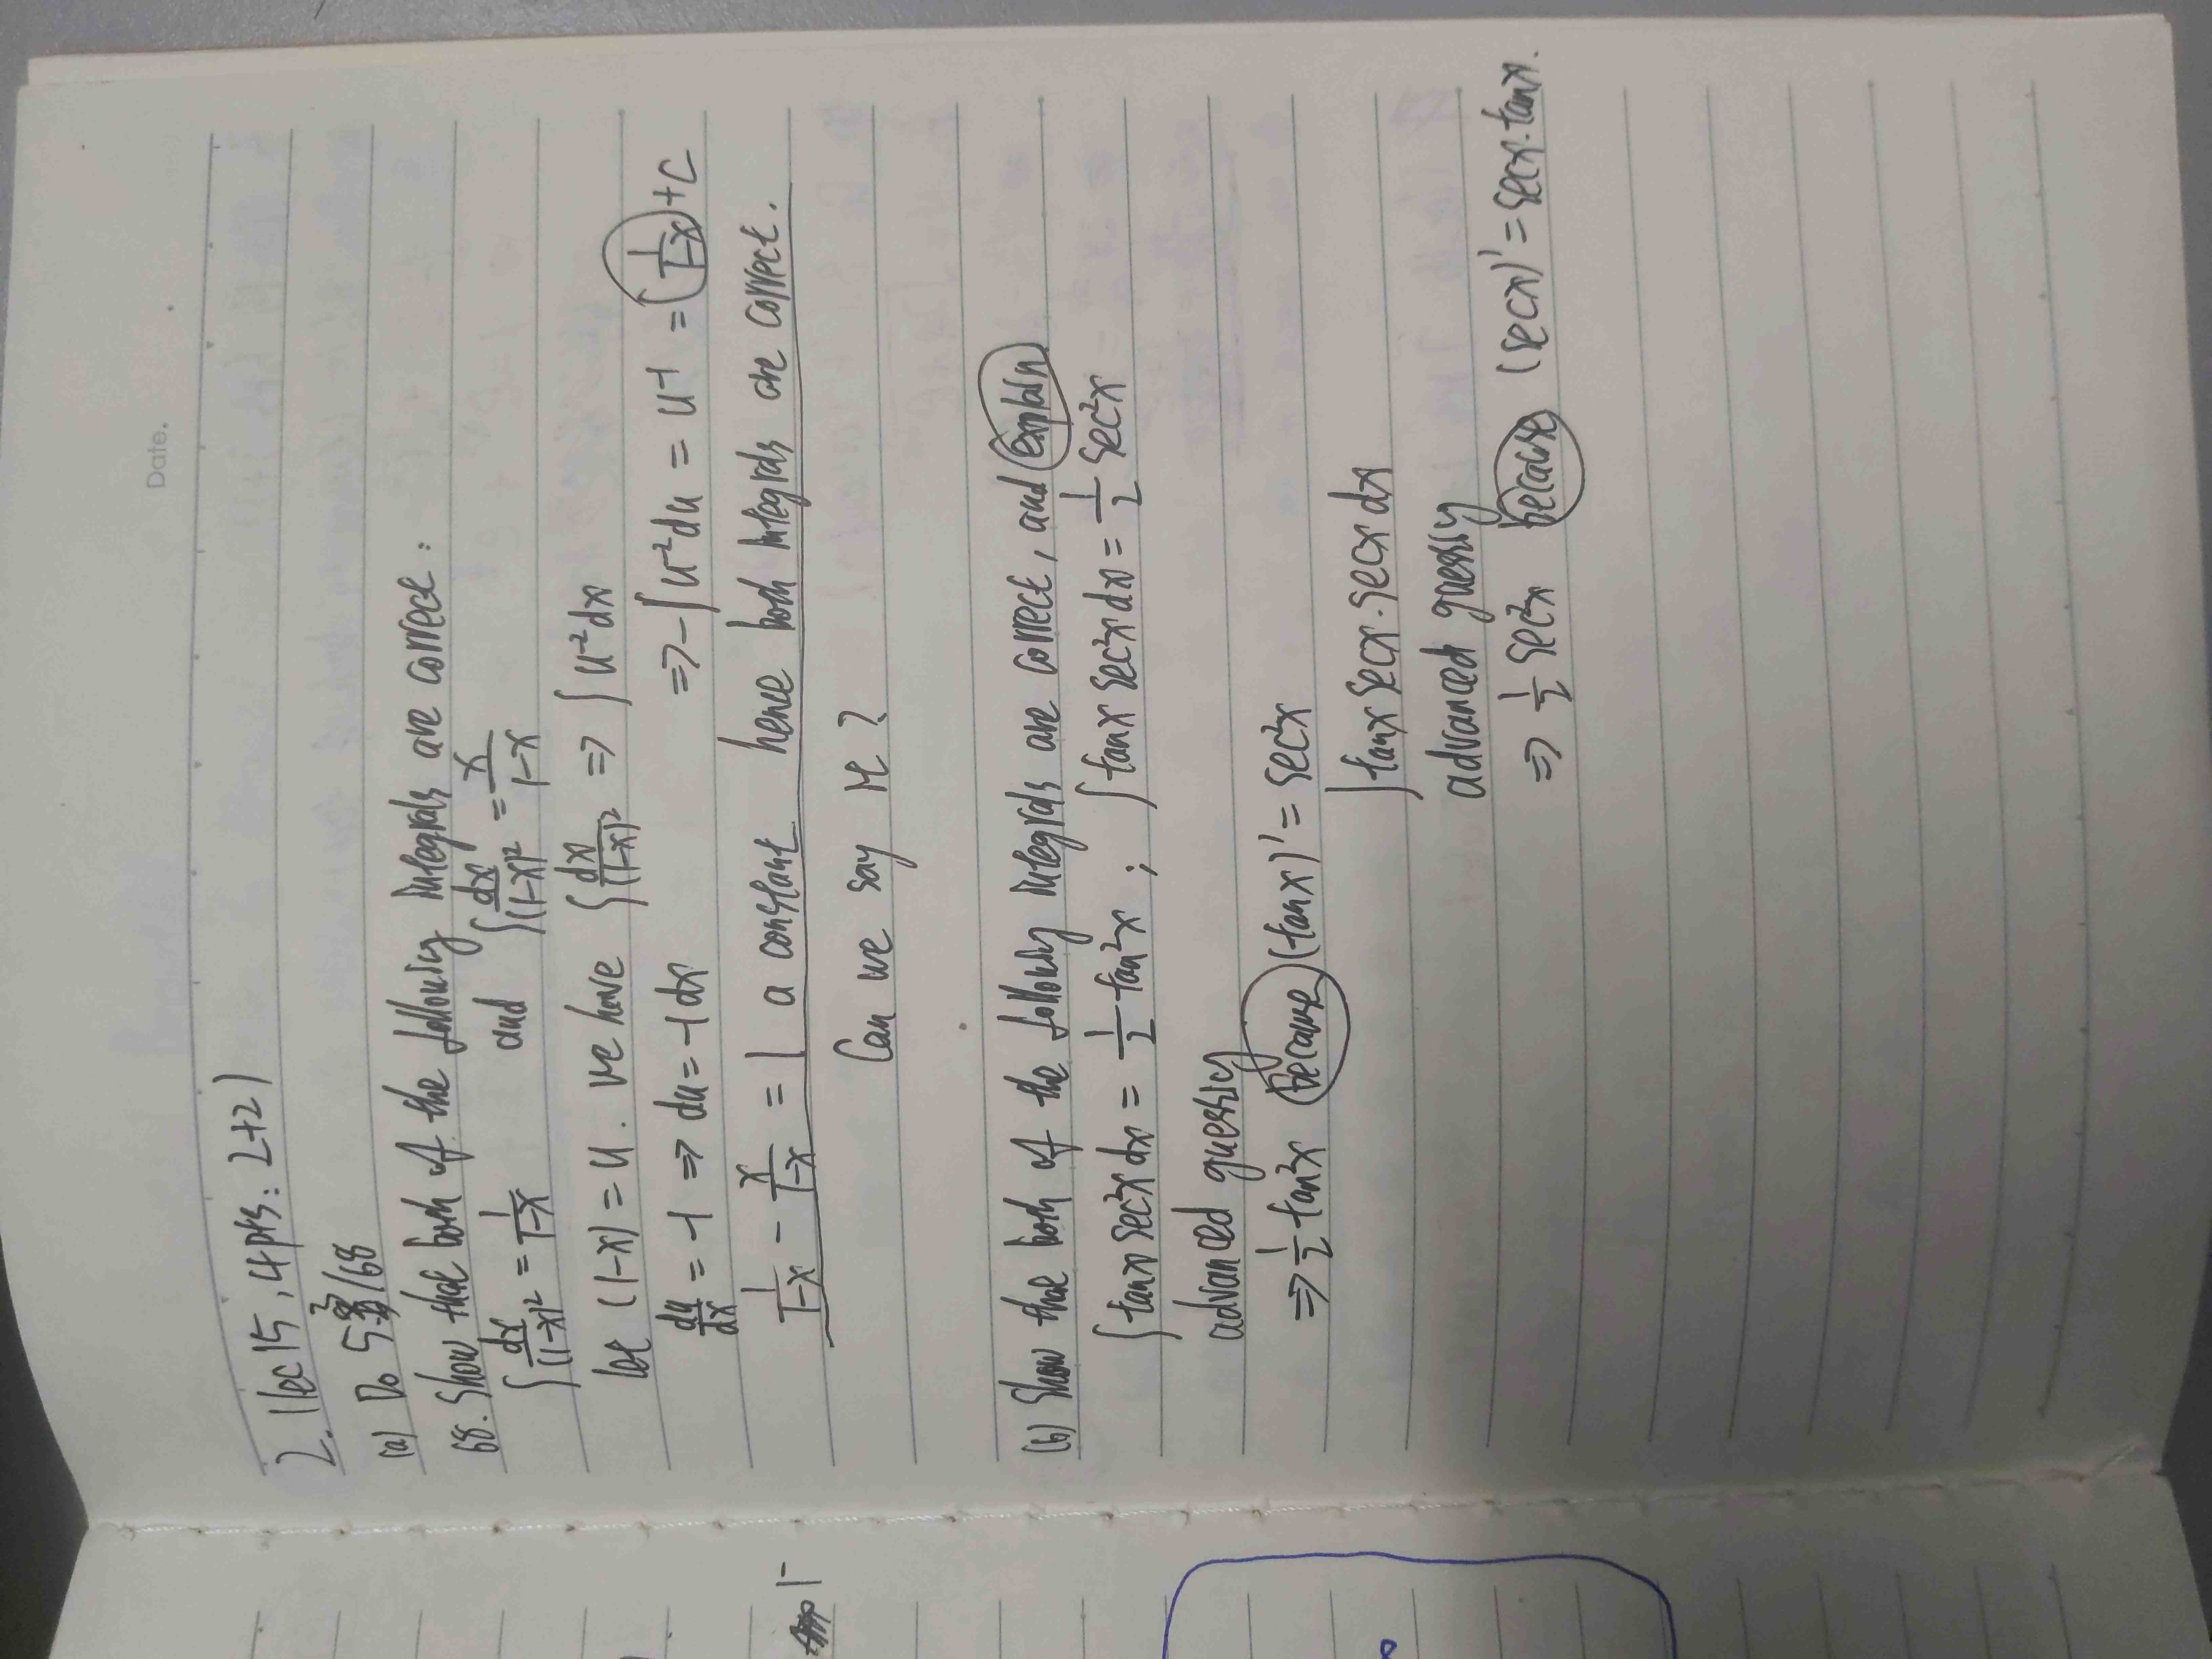 Date.
2. (lec 15, 4pts: 2+2)
(a) Do 5.3/68
68. Show that both of the following integrals are correct:
∫ dx/(1-x)² = 1/(1-x) and ∫ dx/(1-x)² = x/(1-x)
let (1-x) = u. we have ∫ dx/(1-x)² => ∫ u⁻² dx
du/dx = -1 => du = -1 dx => -∫ u⁻² du = u⁻¹ = 1/(1-x) + C
1/(1-x) - x/(1-x) = 1 a constant hence both integrals are correct.
Can we say it?
(b) Show that both of the following integrals are correct, and explain
∫ tanx sec²x dx = 1/2 tan²x ; ∫ tanx sec²x dx = 1/2 sec²x
advanced guessing
=> 1/2 tan²x because (tanx)' = sec²x
∫ tanx secx · secx dx
advanced guessing
=> 1/2 sec²x because (secx)' = secx · tanx.